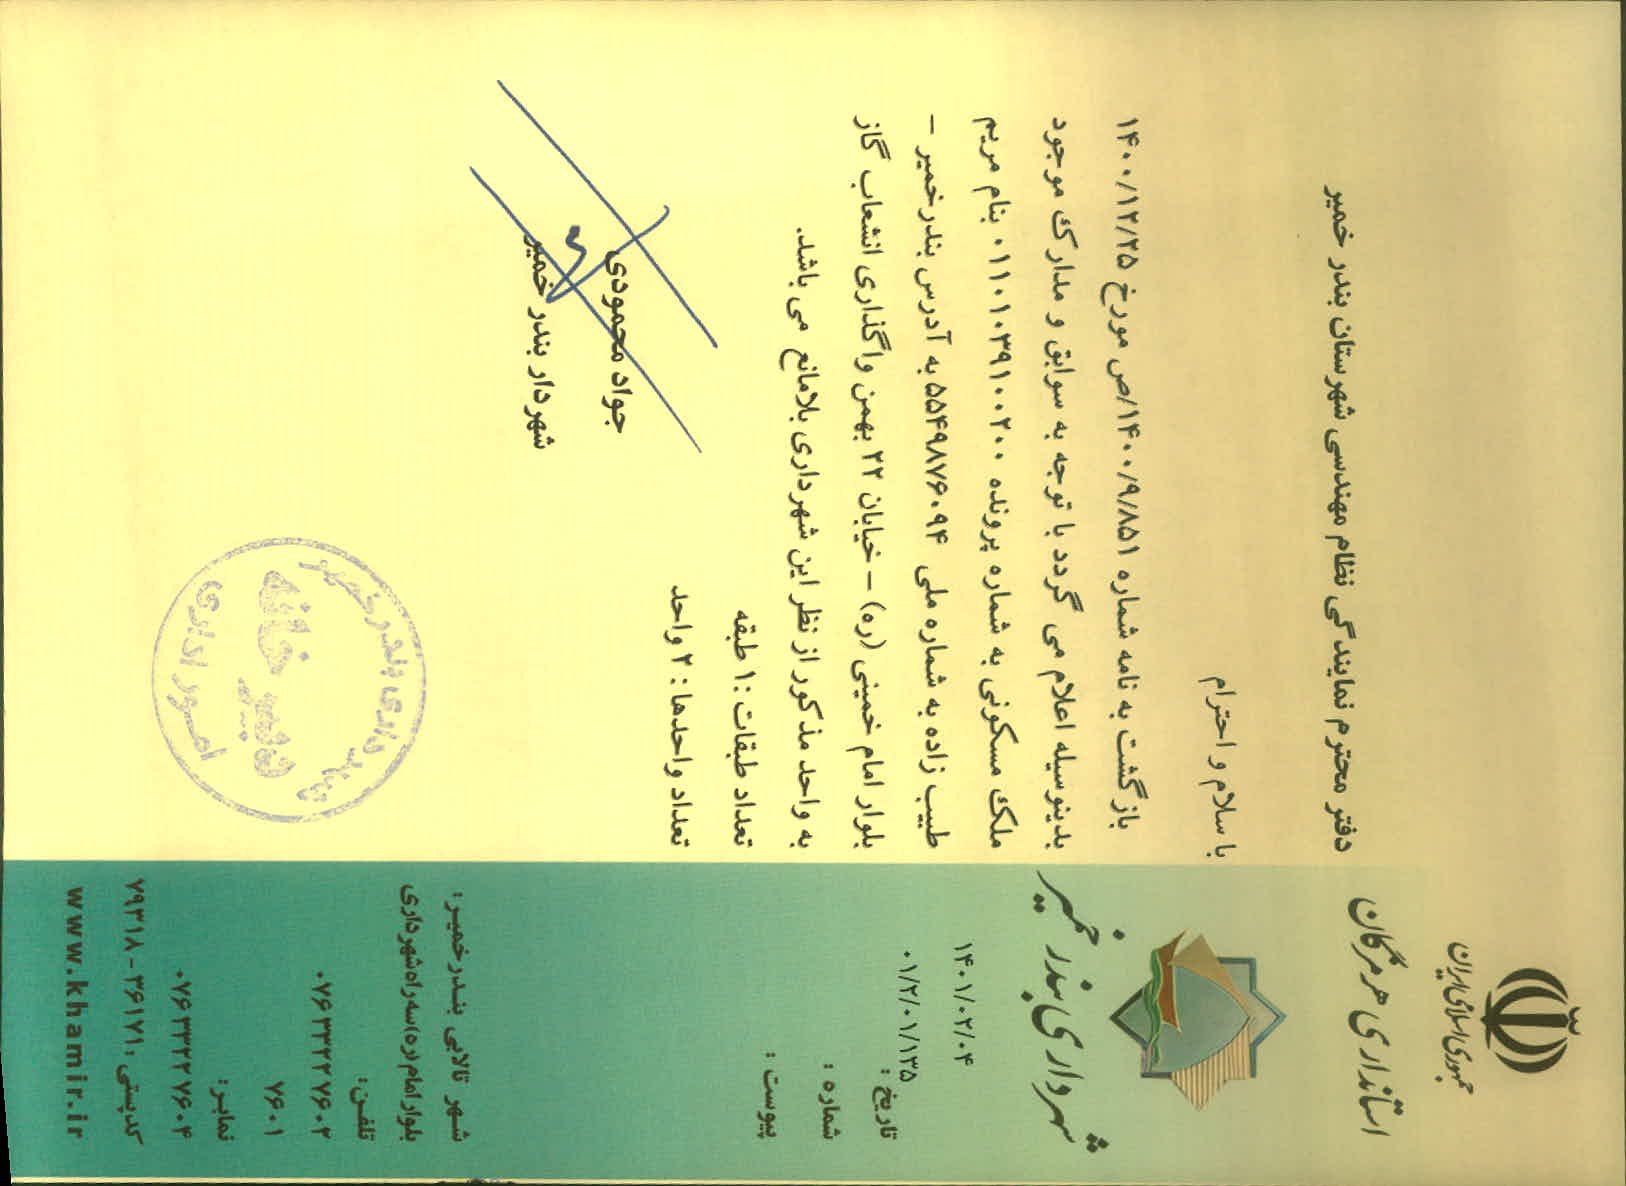 جمهوری اسلامی ایران
استانداری هرمزگان
شهرداری بندر خمیر
۱۴۰۱/۰۲/۰۴
۰۱/۲/۰۱/۱۳۵
تاریخ :
شماره :
پیوست :
دفتر محترم نمایندگی نظام مهندسی شهرستان بندر خمیر
با سلام و احترام
بازگشت به نامه شماره ۱۴۰۰/۹/۸۵۱/ص مورخ ۱۴۰۰/۱۲/۲۵
بدینوسیله اعلام می گردد با توجه به سوابق و مدارک موجود
ملک مسکونی به شماره پرونده ۰۱۱۰۱۰۳۹۱۰۰۲۰۰ بنام مریم
طبیب زاده به شماره ملی ۵۵۴۹۸۷۶۰۹۴ به آدرس بندرخمیر –
بلوار امام خمینی (ره) – خیابان ۲۲ بهمن واگذاری انشعاب گاز
به واحد مذکور از نظر این شهرداری بلامانع می باشد.
تعداد طبقات :۱ طبقه
تعداد واحدها : ۲ واحد
جواد محمودی
شهردار بندر خمیر
شهرداری بندر خمیر
امور اداری
شهر تالابی بندرخمیر:
بلوار امام(ره)سه راه شهرداری
تلفن:
۰۷۶ ۳۳۲۲ ۷۶۰۲
۷۶۰۱
نمابر:
۰۷۶ ۳۳۲۲ ۷۶۰۴
کدپستی : ۳۶۱۷۱ - ۷۹۳۱۸
www.khamir.ir